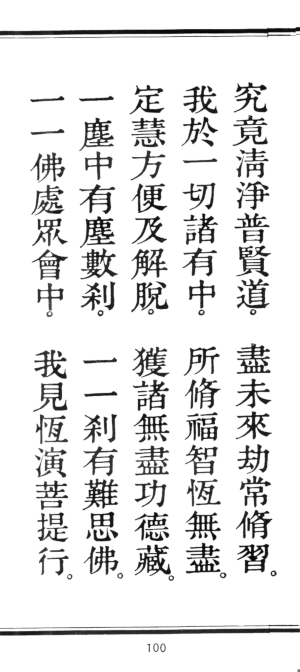 究竟清淨普賢道。盡未來劫常脩習。
我於一切諸有中。所脩福智恆無盡。
定慧方便及解脫。獲諸無盡功德藏。
一塵中有塵數剎。一一剎有難思佛。
一一佛處眾會中。我見恆演菩提行。
100